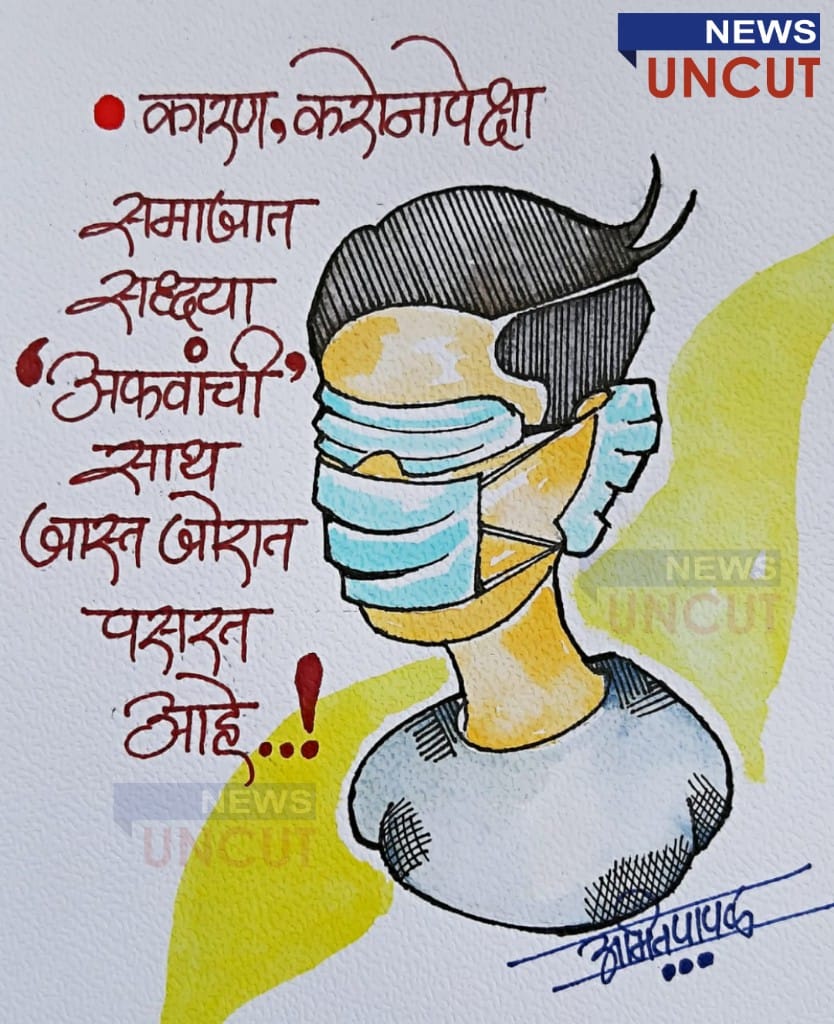 NEWS
UNCUT
कारण, करोनापेक्षा
समाजात
सध्द्या
'अफवांची'
साथ
जास्त जोरात
पसरत
आहे..!
NEWS
UNCUT
NEWS
UNCUT
अमित पापळ